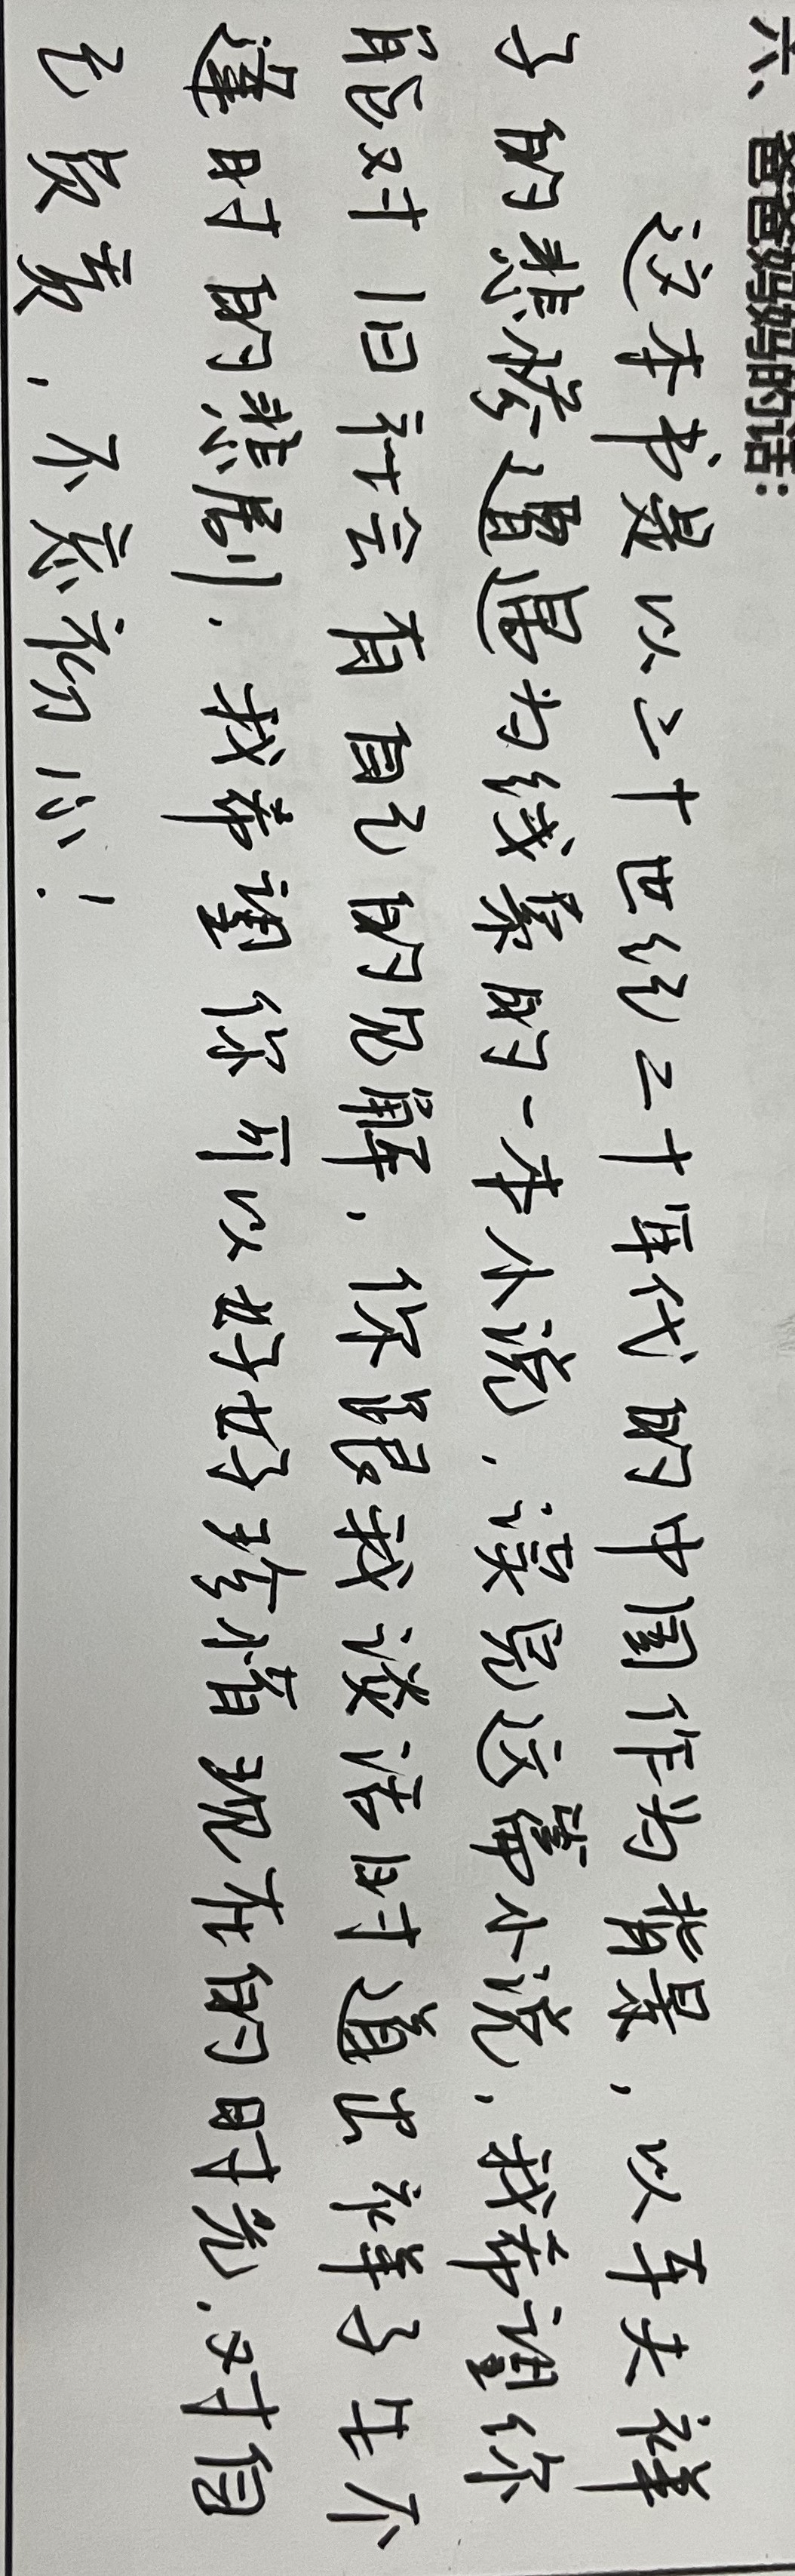 六、爸爸妈妈的话：
这本书是以二十世纪二十年代的中国作为背景，以车夫祥
子的悲惨遭遇为线索的一本小说，读完这篇小说，我希望你
能对旧社会有自己的见解，你跟我谈话时道出祥子生不
逢时的悲剧，我希望你可以好好珍惜现在的时光，对自
己负责，不忘初心！